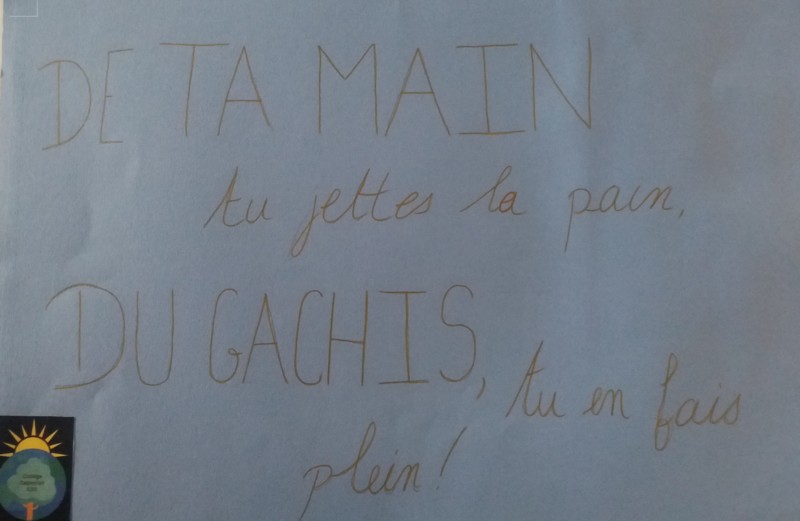 DE TA MAIN
tu jettes la pain,
DU GACHIS, tu en fais
plein!